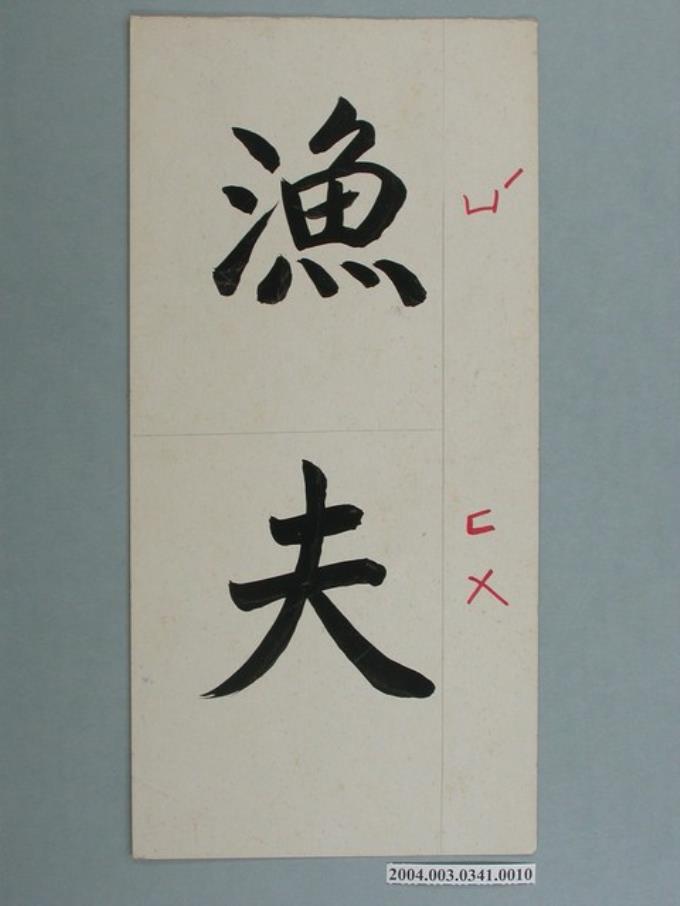 漁夫
ㄩˊ
ㄈㄨ
2004.003.0341.0010